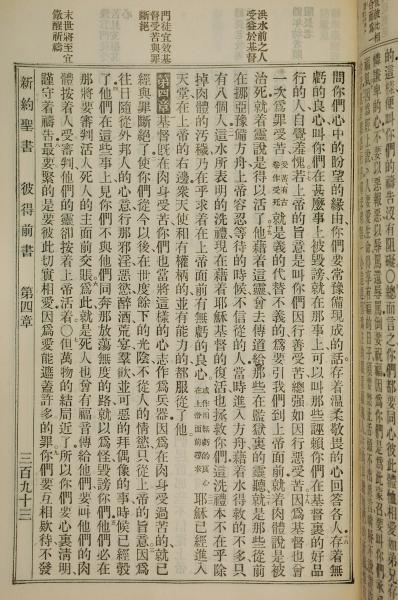 的這樣便叫你們的禱告沒有阻礙○總而言之你們都要同心彼此體恤相愛如弟兄存
洪水前之人
受益於基督
門徒宜效基
督受苦與罪
斷絕
末世將至宜
儆醒祈禱
問你們心中的盼望的緣由你們要常豫備現成的話存着溫柔敬畏的心回答各人存着無
虧的良心叫你們在甚麽事上被毀謗就在那事上可以叫那些誣賴你們在基督裏的好品
行的人自覺羞愧若上帝的旨意是叫你們因行善受苦總强如因行惡受苦因爲基督也曾
一次爲罪受苦受苦有古卷作受死就是義的代替不義的爲要引我們到上帝面前就着肉體說是被
治死就着靈說是得以活了他藉着這靈曾去傳道給那些在監獄裏的靈聽就是那些從前
在挪亞豫備方舟上帝容忍等待的時候不信從的人當時進入方舟藉着水得救的不多只
有八個人這水所表明的洗禮現在藉着耶穌基督的復活也拯救你們這洗禮本不在乎除
掉肉體的汚穢乃在乎求着在上帝面前有無虧的良心或作用無虧的良心在上帝面前尋求耶穌已經進入
天堂在上帝的右邊衆天使和有權柄的並有能力的都服從了他
第四章 基督旣在肉身受苦你們也當將這樣的心志作爲兵器因爲在肉身受過苦的就已
經與罪斷絕了使你們從今以後在世度餘下的光陰不從人的情慾只從上帝的旨意因爲
往日隨從外邦人的心意行那邪淫惡慾醉酒荒宴羣飲並可惡的拜偶像的事時候已經彀
了他們在這些事上見你們不與他們同奔那放蕩無度的路就以爲怪毀謗你們他們必在
那將要審判活人死人的主面前交賬爲此就是死人也曾有福音傳給他們要叫他們的肉
體按着人受審判他們的靈卻按着上帝活着○但萬物的結局近了所以你們要心裏清明
謹守着禱告最要緊的是要彼此切實相愛因爲愛能遮蓋許多的罪你們要互相款待不發
新約聖書 彼得前書 第四章 三百九十三